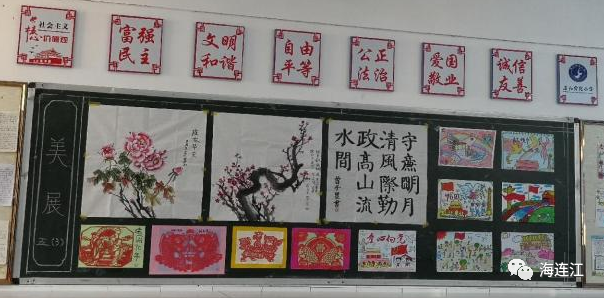 社会主义
核心价值观
富强
民主
文明
和谐
自由
平等
公正
法治
爱国
敬业
诚信
友善
美展
守廉明月
清風際勤
政高山流
水間
童心向党
海连江